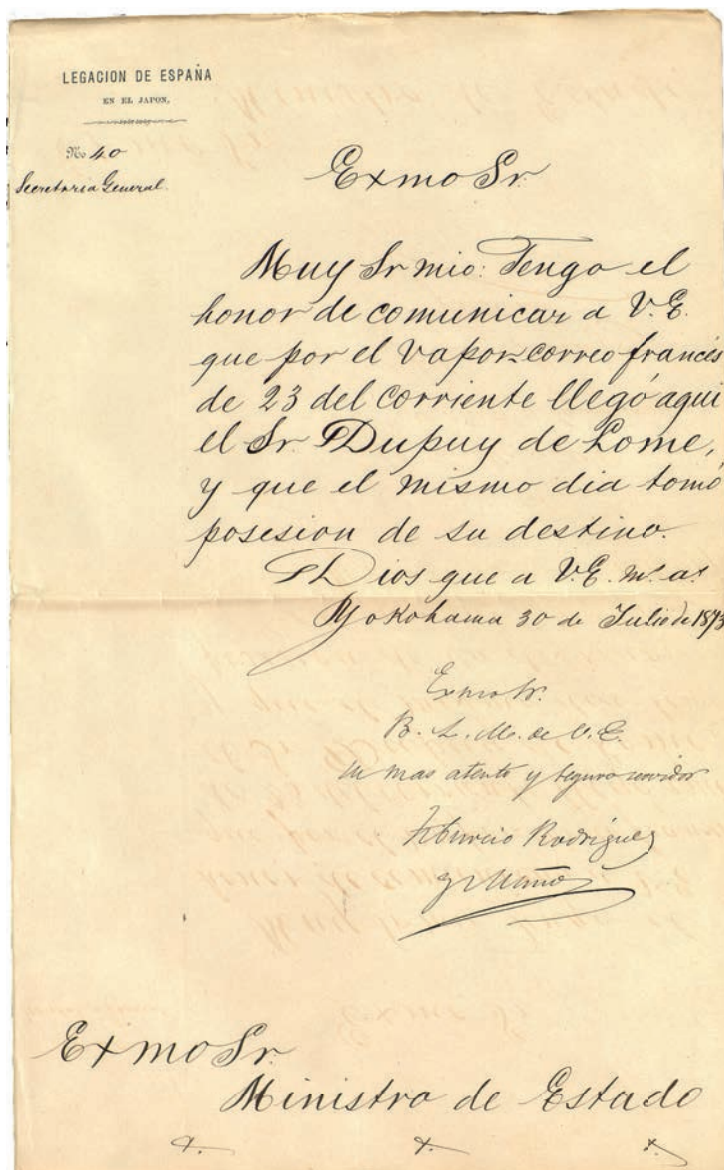 LEGACION DE ESPAÑA
EN EL JAPON,
No 40
Secretaria General.
Exmo Sr.
Muy Sr mio: Tengo el
honor de comunicar a V.E.
que por el vapor-correo francés
de 23 del corriente llegó aqui
el Sr. Dupuy de Lome,
y que el mismo dia tomó
posesion de su destino.
Dios gue a V.E. ms. as.
Yokohama 30 de Julio de 1873
Exmo Sr.
B. L. M. de V. E.
su mas atento y seguro servidor
Tiburcio Rodriguez
y Muñoz
Exmo Sr.
Ministro de Estado